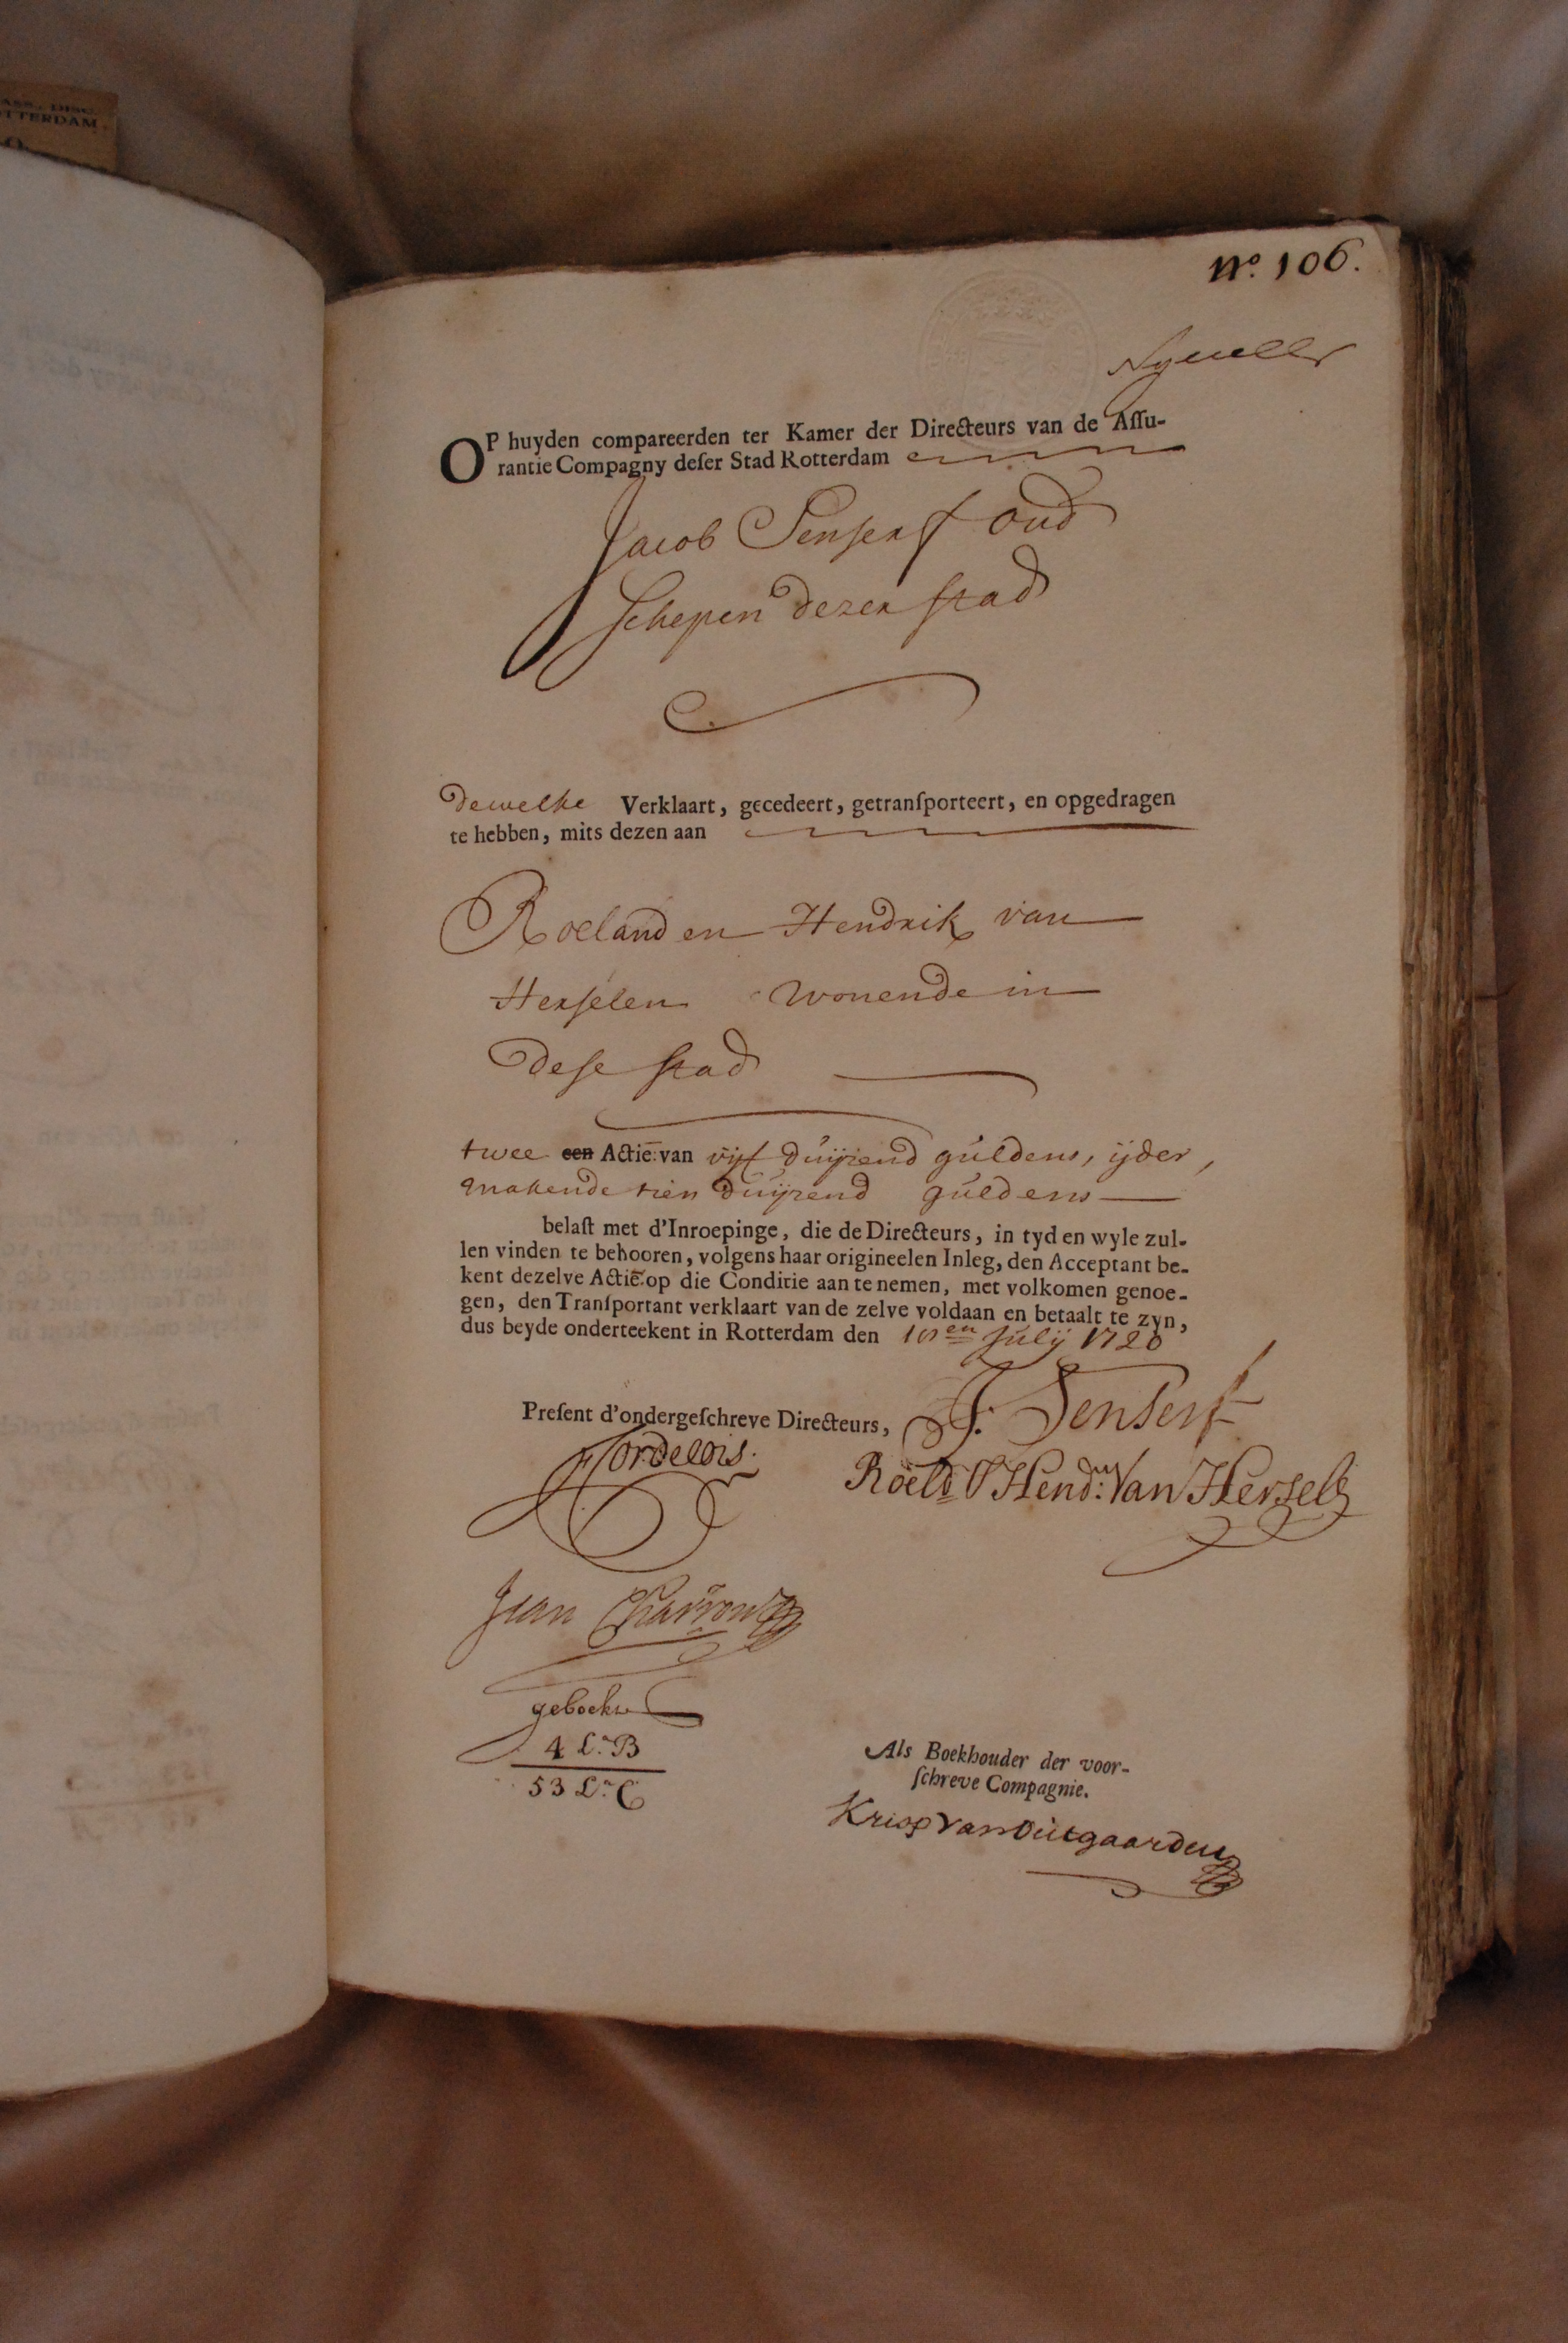 ASS. DISC.
OTTERDAM.
Nº. 106.
OP huyden compareerden ter Kamer der Directeurs van de Assu-
rantie Compagny deser Stad Rotterdam
Jacob Senserf oud
schepen dezer stad
dewelke Verklaart, gecedeert, getransporteert, en opgedragen
te hebben, mits dezen aan
Roeland en Hendrik van
Herselen wonende in
dese stad
twee een Actie: van vijf duijzend guldens, ijder,
makende tien duijzend guldens
belast met d'Inroepinge, die de Directeurs, in tyd en wyle zul-
len vinden te behooren, volgens haar origineelen Inleg, den Acceptant be-
kent dezelve Actie: op die Conditie aan te nemen, met volkomen genoe-
gen, den Transportant verklaart van de zelve voldaan en betaalt te zyn,
dus beyde onderteekent in Rotterdam den 10en Julij 1720
Present d'ondergeschreve Directeurs,
J. Senserf
Roeld & Hend: Van Hersele
Jean Charron
geboekt
4 Lr. B
53 Lr. C
Als Boekhouder der voor-
schreve Compagnie.
Krisp Van Uitgaarden